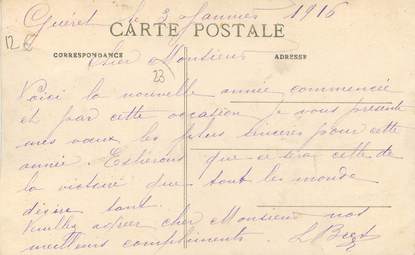 Guéret le 3 Janvier 1916
CARTE POSTALE
CORRESPONDANCE
ADRESSE
12
Cher Monsieur
23
Voici la nouvelle année commencée
et par cette occasion je vous présente
mes vœux les plus sincères pour cette
année. Espérons que ce sera celle de
la victoire que tout le monde
désire tant.
Veuillez agréer cher Monsieur nos
meilleurs compliments.